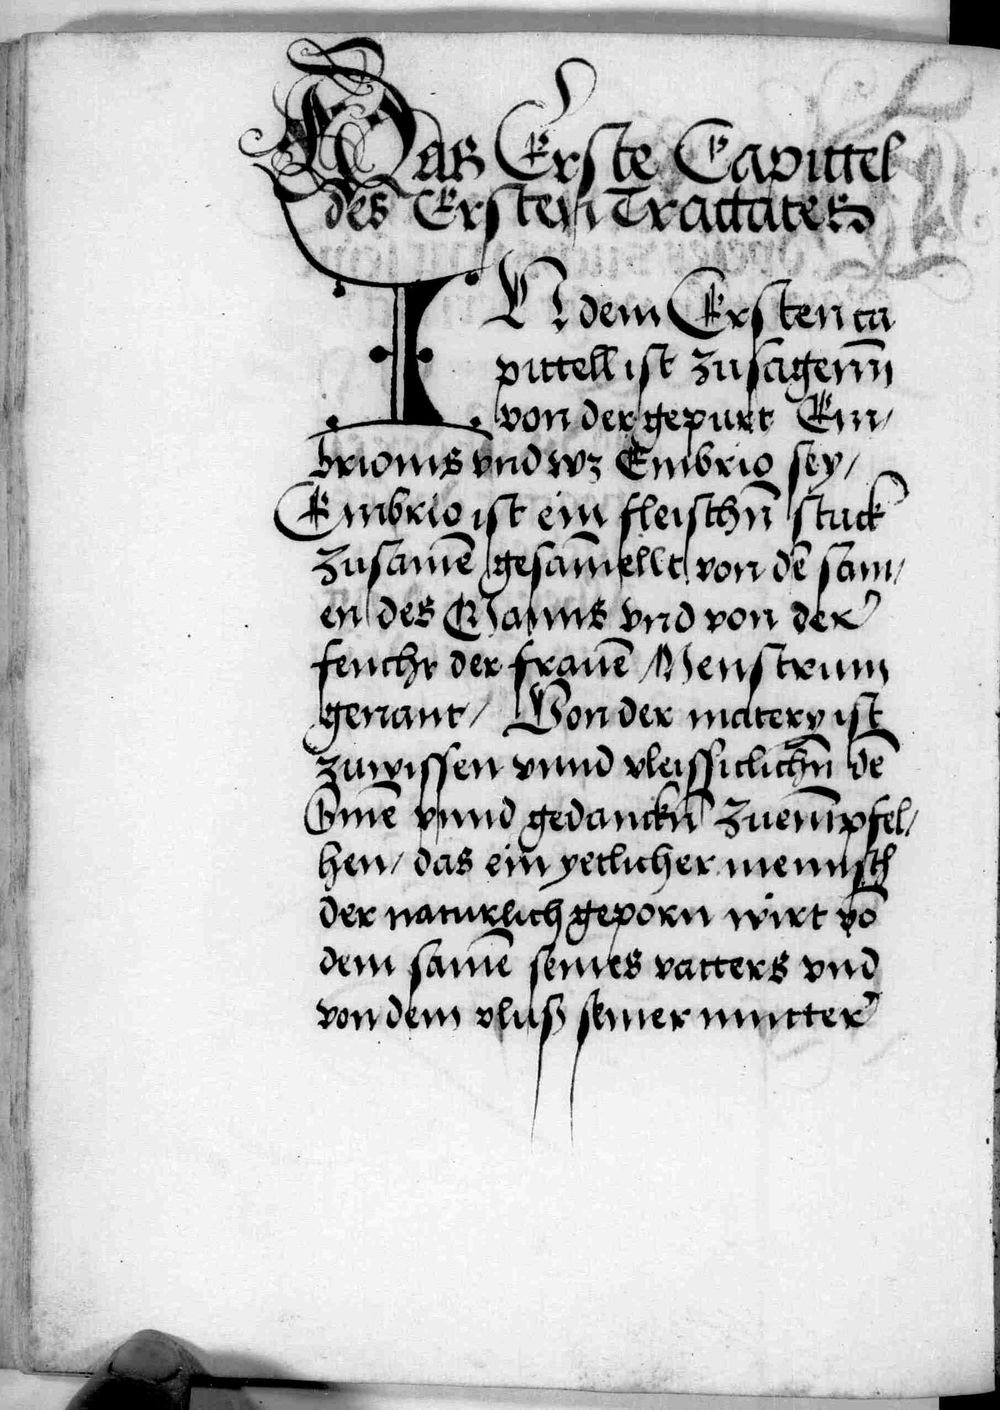 Das Erste Capittel
des Ersten Tractates
IN dem Ersten ca
pittell ist zusagenn̄
von der gepurt Em/
brionis vnd wz Embrio sey/
Embrio ist ein fleischn̄ stuck
zusamē gesam̄ellt von dē sam/
en des Manns vnd von der
feucht der frauē Menstrum
genant/ Von der matery ist
zuwissen vnnd vleissiclichn̄ dē
Sinnē vnnd gedanckn̄ zuem̄pfel/
hen/ das ein yetlicher mennsch
der naturlich geporn wirt vō
dem samē seines vatters vnd
von dem vluß seiner muttter